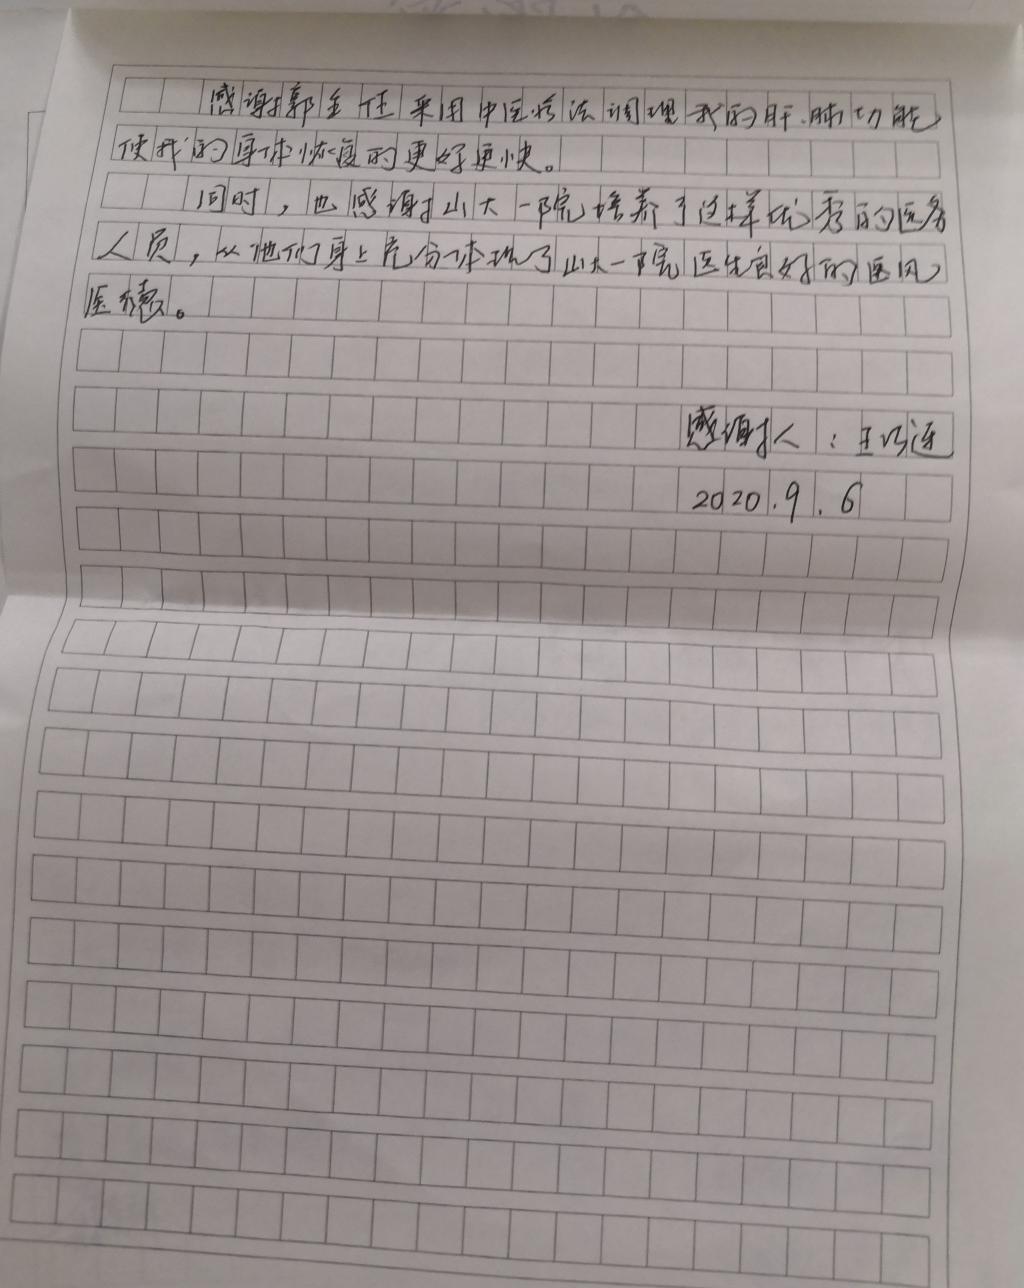 感谢郭主任采用中医疗法调理我的肝.肺功能
使我的身体恢复的更好更快。
同时，也感谢山大一院培养了这样优秀的医务
人员，从他们身上充分体现了山大一院医生良好的医风
医德。
感谢人：王巧连
2020.9.6